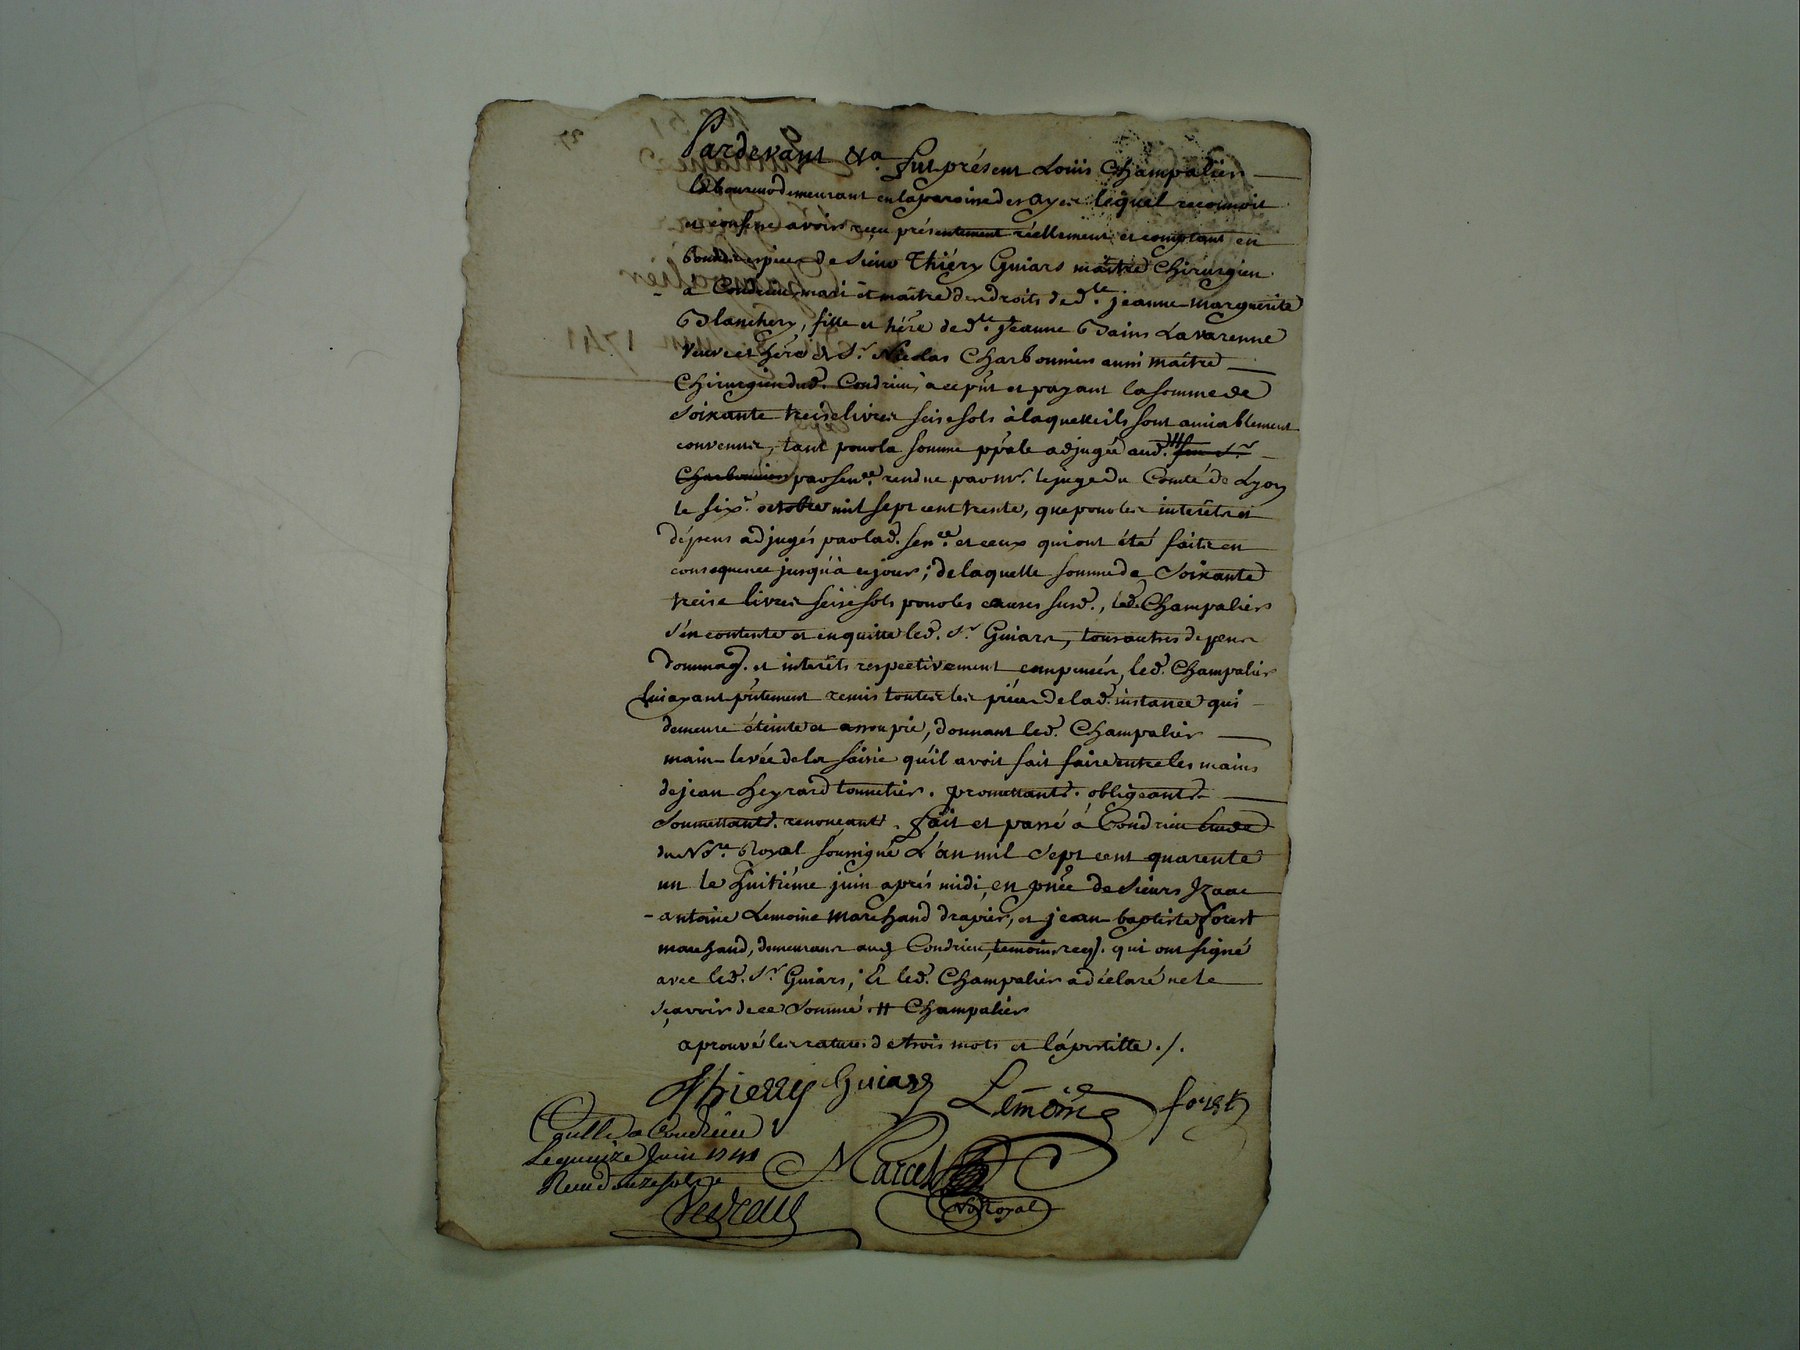 Pardevant &a. fut présent Louis Champalier
laboureur demeurant en la paroisse des ayes lequel reconnoit
et confesse avoir reçu présentement réellement et comptant en
de Sieur Thiéry Guiars maître Chirurgien
a Condrieu, mari et maître des droits de dlle. jeanne Marguerite
Blanchery, fille et hére de dlle. Jeanne Bains Lavarenne
veuve et hére de Sr. Nicolas Charbonnier aussi maître
Chirurgien dud. Condrieu, acceptt et payant la somme de
soixante treise livres seise sols à laquelle ils sont amiablement
convenus, tant pour la somme pp̃ale adjugée aud. # feu Sr.
Charbonnier par senee. rendue par Mr. le juge du Comté de Lyon
le sixe. octobre mil sept cent trente, que pour les interêts et
dépens adjugés par lad. sence. et ceux qui ont été faits en
consequence jusqu'à ce jour; de laquelle somme de soixante
treise livres seise sols pour les causes susd., led. Champalier
s'en contente et en quitte led. Sr. Guiars, tous autres depens
dommag. et interêts respectivement compensés, led. Champalier
lui ayant pñtement remis toutes les pièces de lad. instance qui
demeure éteinte et assoupie, donnant led. Champalier
main-levée de la saisie qu'il avoit fait faire entre les mains
de jean heyrard tonnelier. promettant. obligeant.
soumettant. renonceant. fait et passé à Condrieu étude
du Nore. Royal soussigné L'an mil sept cent quarente
un le huitième juin après midi, en pñce de sieurs Izaac
antoine Lemoine marchand drapier, et jean-baptiste forest
marchand, demeurans aud Condrieu, temoins req. qui ont signé
avec led. Sr. Guiars, Et led. Champalier a déclaré ne le
sçavoir de ce sommé. # Champalier
aprouvé les ratures de trois mots et l'apostille ./.
Thierry Guiars Lemoine forest
Conllé a Condrieu
Le quinze Juin 1741
Receu douze sols
Marcel
No. Royal